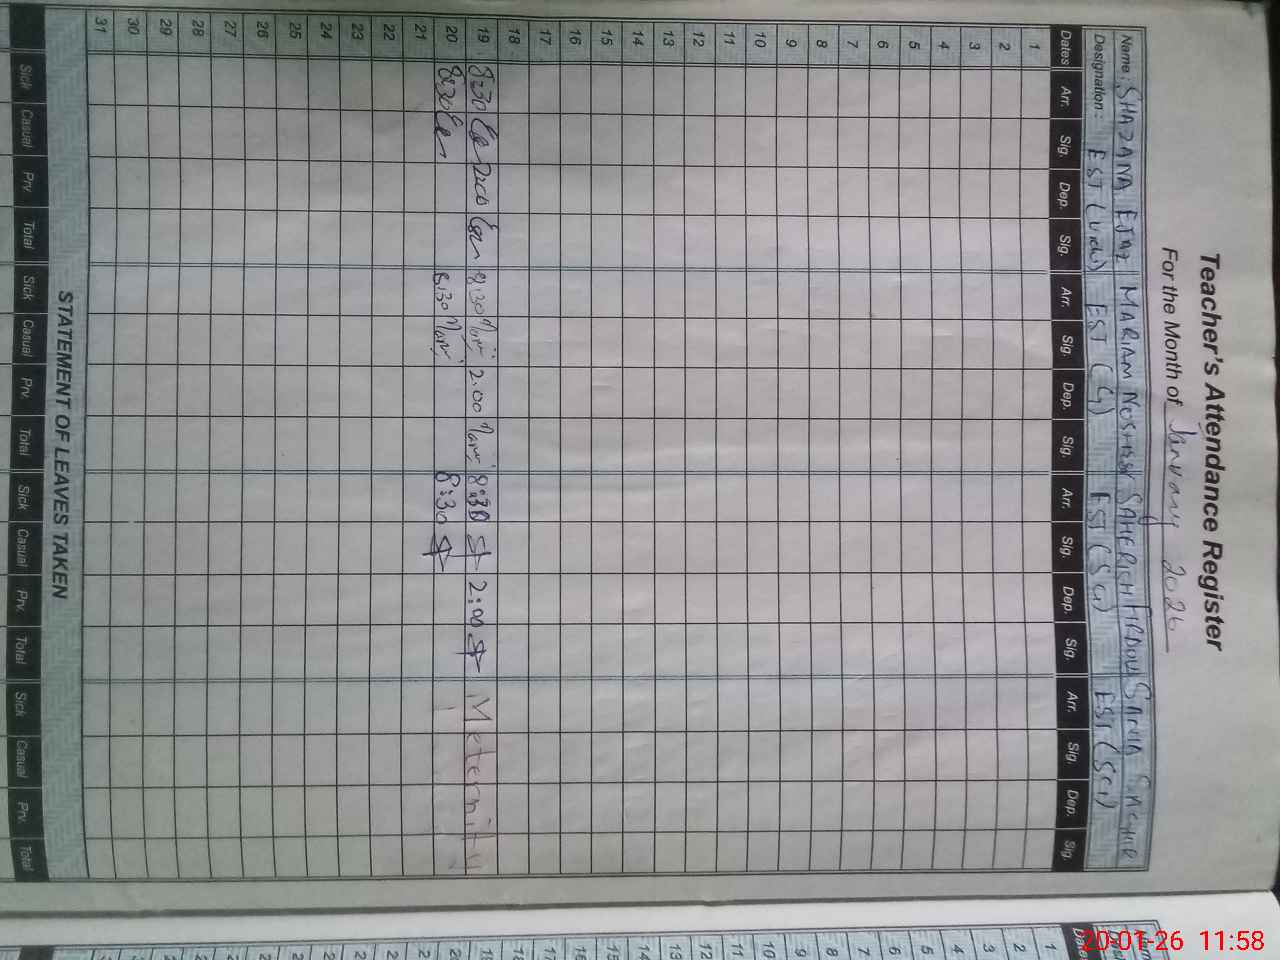 Teacher's Attendance Register
For the Month of January 2026
Name: SHAZANA EJAZ MARIAM NOSHEEN SAHERISH FIRDOUS SADIA SAGHIR
Designation: EST EST ( EST (Sci) EST (Sci)
Dates Arr. Sig. Dep. Sig. Arr. Sig. Dep. Sig. Arr. Sig. Dep. Sig. Arr. Sig. Dep. Sig.
1
2
3
4
5
6
7
8
9
10
11
12
13
14
15
16
17
18
19 8:30 8:30 2.00 8:30 2:00 Meternity
20 8:30 8:30 8:30
21
22
23
24
25
26
27
28
29
30
31
STATEMENT OF LEAVES TAKEN
Sick Casual Prv. Total Sick Casual Prv. Total Sick Casual Prv. Total Sick Casual Prv. Total
1
2
3
4
5
6
7
8
9
10
11
12
13
14
15
16
17
20-01-26 11:58